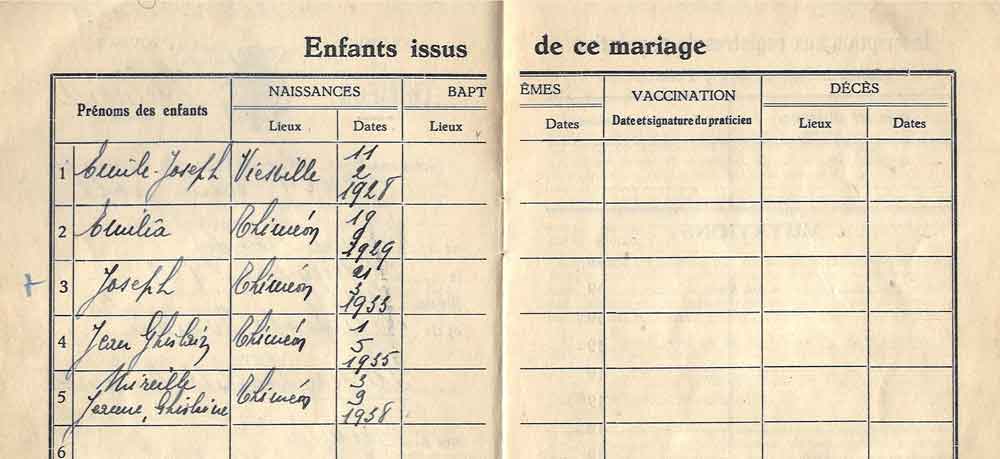 Enfants issus de ce mariage
Prénoms des enfants NAISSANCES BAPT ÊMES VACCINATION DÉCÈS
Lieux Dates Lieux Dates Date et signature du praticien Lieux Dates
1 Emile-Joseph Viesville 11
2
1928
2 Emilia Thiméon 19
1929
3 Joseph Thiméon 21
3
1933
4 Jean Ghislain Thiméon 1
5
1935
5 Mireille
Jeanne, Ghislaine Thiméon 3
9
1938
6